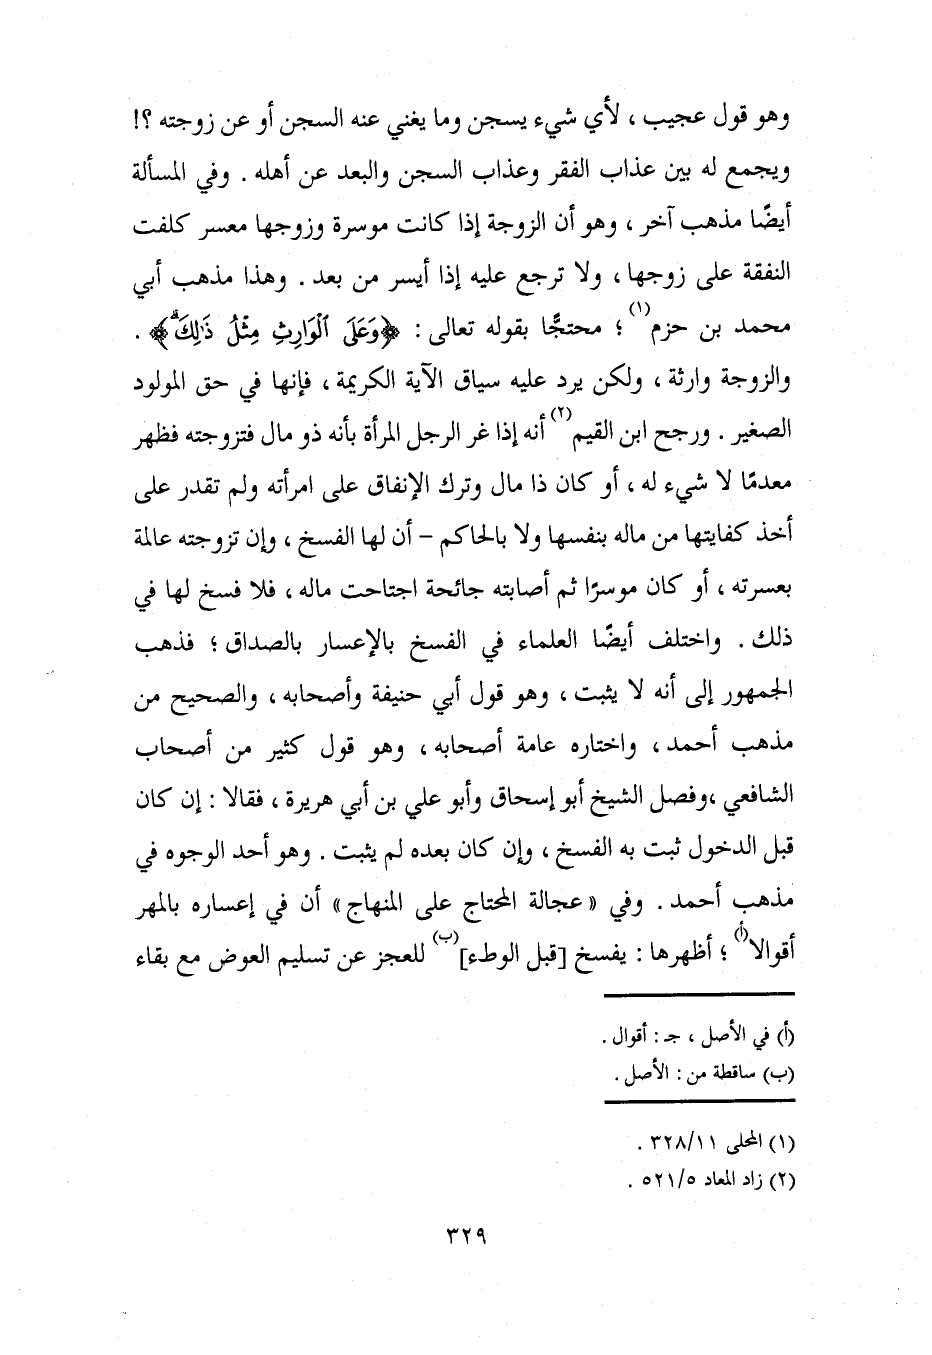 وهو قول عجيب ، لأي شيء يسجن وما يغني عنه السجن أو عن زوجته ؟!
ويجمع له بين عذاب الفقر وعذاب السجن والبعد عن أهله . وفي المسألة
أيضًا مذهب آخر ، وهو أن الزوجة إذا كانت موسرة وزوجها معسر كلفت
النفقة على زوجها ، ولا ترجع عليه إذا أيسر من بعد . وهذا مذهب أبي
محمد بن حزم(١) ؛ محتجًّا بقوله تعالى : ﴿وَعَلَى ٱلْوَارِثِ مِثْلُ ذَٰلِكَۗ﴾ .
والزوجة وارثة ، ولكن يرد عليه سياق الآية الكريمة ، فإنها في حق المولود
الصغير . ورجح ابن القيم(٢) أنه إذا غر الرجل المرأة بأنه ذو مال فتزوجته فظهر
معدمًا لا شيء له ، أو كان ذا مال وترك الإنفاق على امرأته ولم تقدر على
أخذ كفايتها من ماله بنفسها ولا بالحاكم – أن لها الفسخ ، وإن تزوجته عالمة
بعسرته ، أو كان موسرًا ثم أصابته جائحة اجتاحت ماله ، فلا فسخ لها في
ذلك . واختلف أيضًا العلماء في الفسخ بالإعسار بالصداق ؛ فذهب
الجمهور إلى أنه لا يثبت ، وهو قول أبي حنيفة وأصحابه ، والصحيح من
مذهب أحمد ، واختاره عامة أصحابه ، وهو قول كثير من أصحاب
الشافعي ،وفصل الشيخ أبو إسحاق وأبو علي بن أبي هريرة ، فقالا : إن كان
قبل الدخول ثبت به الفسخ ، وإن كان بعده لم يثبت . وهو أحد الوجوه في
مذهب أحمد . وفي « عجالة المحتاج على المنهاج » أن في إعساره بالمهر
أقوالا(أ) ؛ أظهرها : يفسخ [قبل الوطء](ب) للعجز عن تسليم العوض مع بقاء
(أ) في الأصل ، جـ : أقوال .
(ب) ساقطة من : الأصل .
(١) المحلى ٣٢٨/١١ .
(٢) زاد المعاد ٥٢١/٥ .
٣٢٩